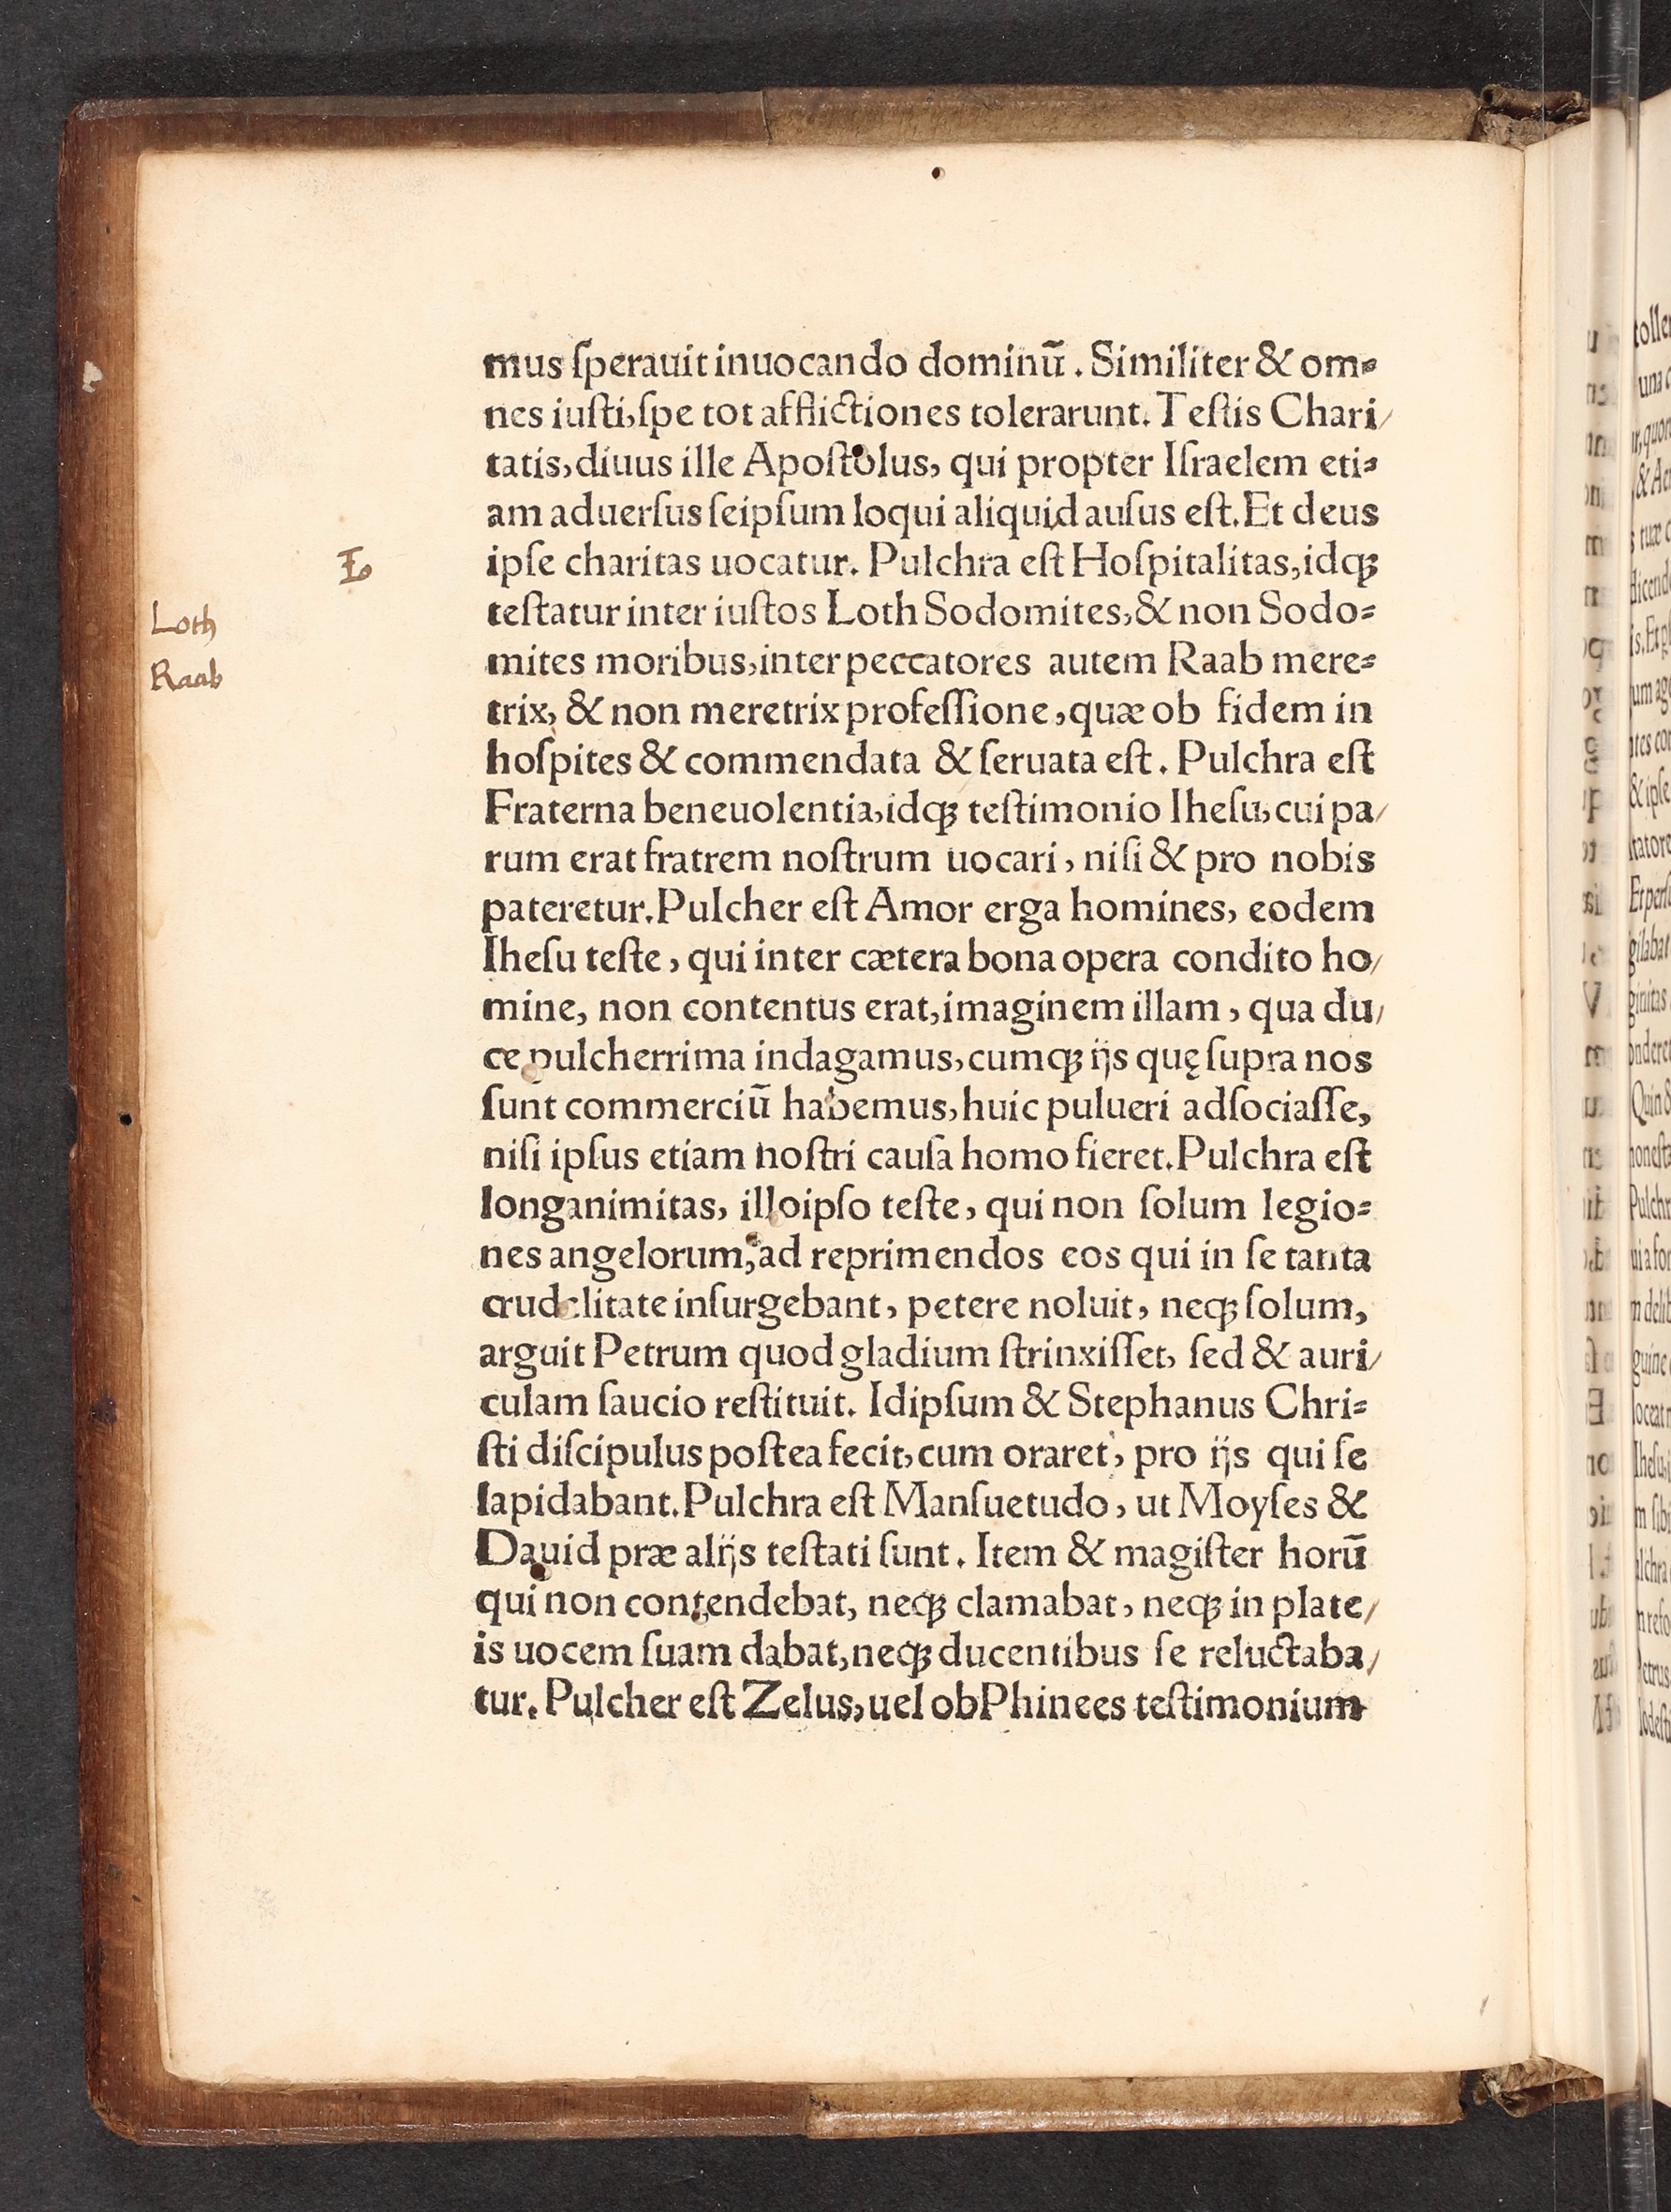 mus ſperauit inuocando dominū. Similiter & om⸗
nes iuſti, ſpe tot afflictiones tolerarunt. Teſtis Chari/
tatis, diuus ille Apoſtolus, qui propter Iſraelem eti⸗
am aduerſus ſeipſum loqui aliquid auſus eſt. Et deus
ipſe charitas uocatur. Pulchra eſt Hoſpitalitas, idqꝫ
Loth
teſtatur inter iuſtos Loth Sodomites, & non Sodo⸗
Raab
mites moribus, inter peccatores autem Raab mere⸗
trix, & non meretrix profeſſione, quæ ob fidem in
hoſpites & commendata & ſeruata eſt. Pulchra eſt
Fraterna beneuolentia, idqꝫ teſtimonio Iheſu, cui pa/
rum erat fratrem noſtrum uocari, niſi & pro nobis
pateretur. Pulcher eſt Amor erga homines, eodem
Iheſu teſte, qui inter cætera bona opera condito ho/
mine, non contentus erat, imaginem illam, qua du/
ce pulcherrima indagamus, cumqꝫ ijs quę ſupra nos
ſunt commerciū habemus, huic pulueri adſociaſſe,
niſi ipſus etiam noſtri cauſa homo fieret. Pulchra eſt
longanimitas, illoipſo teſte, qui non ſolum legio⸗
nes angelorum, ad reprimendos eos qui in ſe tanta
crudelitate inſurgebant, petere noluit, neqꝫ ſolum,
arguit Petrum quod gladium ſtrinxiſſet, ſed & auri/
culam ſaucio reſtituit. Idipſum & Stephanus Chri⸗
ſti diſcipulus poſtea fecit, cum oraret, pro ijs qui ſe
lapidabant. Pulchra eſt Manſuetudo, ut Moyſes &
Dauid præ alijs teſtati ſunt. Item & magiſter horū
qui non contendebat, neqꝫ clamabat, neqꝫ in plate/
is uocem ſuam dabat, neqꝫ ducentibus ſe reluctaba/
tur. Pulcher eſt Zelus, uel ob Phinees teſtimonium